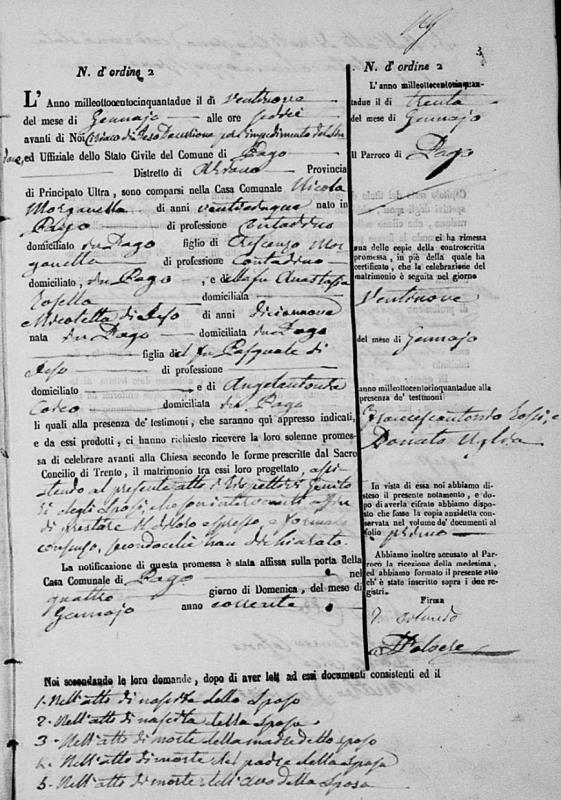 3
N. d'ordine 2
L'Anno milleottocentocinquantadue il dì ventinove
del mese di Gennajo alle ore sedici
avanti di Noi Ciriaco di Reso Decurione per l'impedimento del
ed Uffiziale dello Stato Civile del Comune di Pago
Distretto di Provincia
di Principato Ultra, sono comparsi nella Casa Comunale Nicola
Morganella di anni ventidue nato in
Pago di professione contadino
domiciliato in Pago figlio di Crescenzo Mor
ganella di professione Contadino
domiciliato, in Pago, e della fu Anastasia
Rosella domiciliata
e Nicoletta di Reso di anni diciannove
nata in Pago domiciliata in Pago
figlia del fu Pasquale di
Reso di professione
domiciliato e di Angelantonia
domiciliata in Pago
li quali alla presenza de' testimoni, che saranno qui appresso indicati,
e da essi prodotti, ci hanno richiesto ricevere la loro solenne promes-
sa di celebrare avanti alla Chiesa secondo le forme prescritte dal Sacro
Concilio di Trento, il matrimonio tra essi loro progettato, assi
stendo al presente atto i rispettivi Genito
ri degli Sposi, che sono intervenuti
di prestare il di loro espresso, e formale
consenso, secondochè han dichiarato.
La notificazione di questa promessa è stata affissa sulla porta della
Casa Comunale di Pago nel
quattro giorno di Domenica, del mese di
Gennajo anno corrente.
N. d'ordine 2
L'anno milleottocentocinquan-
tadue il dì trenta
del mese di Gennajo
Il Parroco di Pago
ci ha rimessa
una delle copie della controscritta
promessa, in piè della quale ha
certificato, che la celebrazione del
matrimonio è seguita nel giorno
ventinove
del mese di Gennajo
anno milleottocentocinquantadue alla
presenza de' testimoni
Francescantonio e
Donato
In vista di essa noi abbiamo di-
steso il presente notamento, e do-
po di averla cifrato abbiamo dispo-
sto che fosse la copia anzidetta con-
servata nel volume de' documenti al
folio primo
Abbiamo inoltre accusato al Par-
roco la ricezione della medesima,
ed abbiamo formato il presente atto
ch'è stato inscritto sopra i due re-
gistri.
Firma
Noi secondando le loro domande, dopo di aver letti ad essi documenti consistenti ed il
1. Nell'atto di nascita dello sposo
2. Nell'atto di nascita della sposa
3. Nell'atto di morte della madre dello sposo
4. Nell'atto di morte del padre della sposa
5. Nell'atto di morte dell'avo della sposa